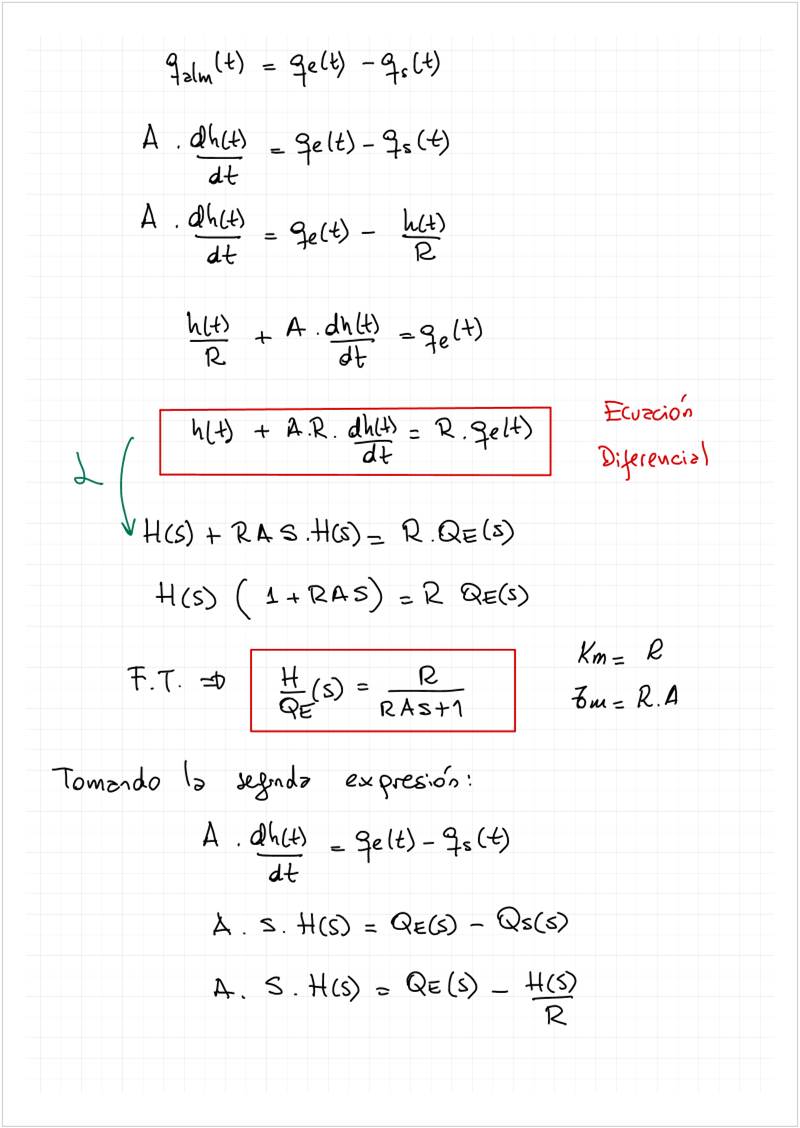 q_alm(t) = q_e(t) - q_s(t)
A . dh(t)/dt = q_e(t) - q_s(t)
A . dh(t)/dt = q_e(t) - h(t)/R
h(t)/R + A . dh(t)/dt = q_e(t)
h(t) + A.R. dh(t)/dt = R . q_e(t)
Ecuación
Diferencial
ℒ
H(s) + R A S . H(s) = R . Q_E(s)
H(s) ( 1 + R A S ) = R Q_E(s)
F.T. ⇒ H/Q_E (s) = R/(R A S + 1)
K_m = R
τ_m = R.A
Tomando la segnda expresión:
A . dh(t)/dt = q_e(t) - q_s(t)
A . S . H(s) = Q_E(s) - Q_S(s)
A . S . H(s) = Q_E(s) - H(s)/R